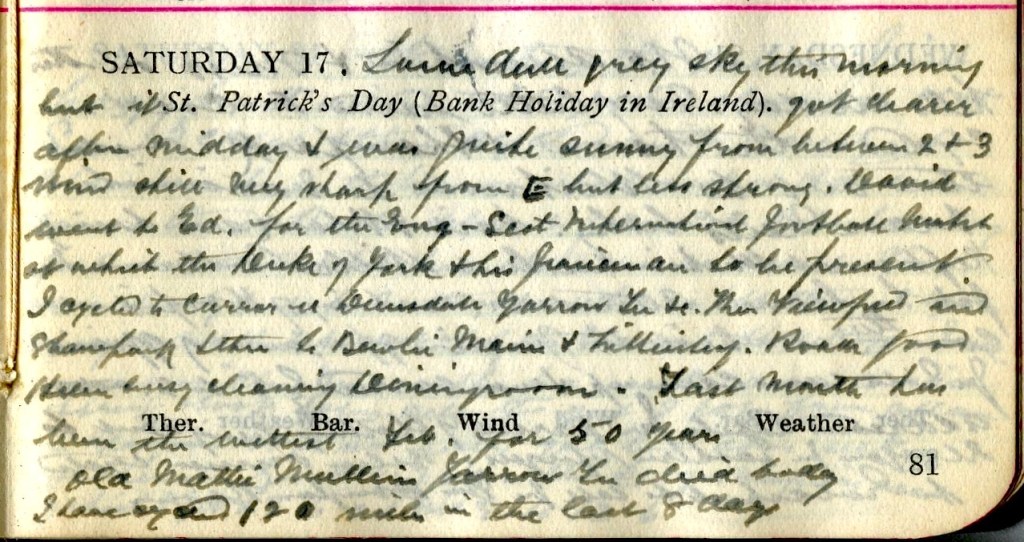 SATURDAY 17. Same dull grey sky this morning
but it St. Patrick's Day (Bank Holiday in Ireland). got clearer
after midday & was quite sunny from between 2 & 3
wind still very sharp from E but less strong. David
went to Ed. for the Eng-Scot International football Match
at which the Duke of York & his to be present
I cycled to Yarrow
& then to Main &. Roads good
busy cleaning Diningroom. Last month has
Ther. Bar. Wind Weather
been the wettest Feb. for 50 years
81
Old Mullin Yarrow died today
I have cycled 120 miles in the last 8 days